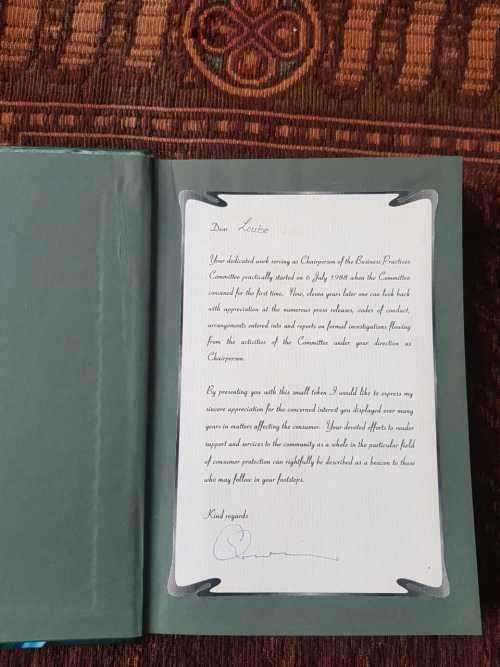 Dear Louise
Your dedicated work serving as Chairperson of the Business Practices
Committee practically started on 6 July 1988 when the Committee
convened for the first time. Now, eleven years later one can look back
with appreciation at the numerous press releases, codes of conduct,
arrangements entered into and reports on formal investigations flowing
from the activities of the Committee under your direction as
Chairperson.
By presenting you with this small token I would like to express my
sincere appreciation for the concerned interest you displayed over many
years in matters affecting the consumer. Your devoted efforts to render
support and services to the community as a whole in the particular field
of consumer protection can rightfully be described as a beacon to those
who may follow in your footsteps.
Kind regards